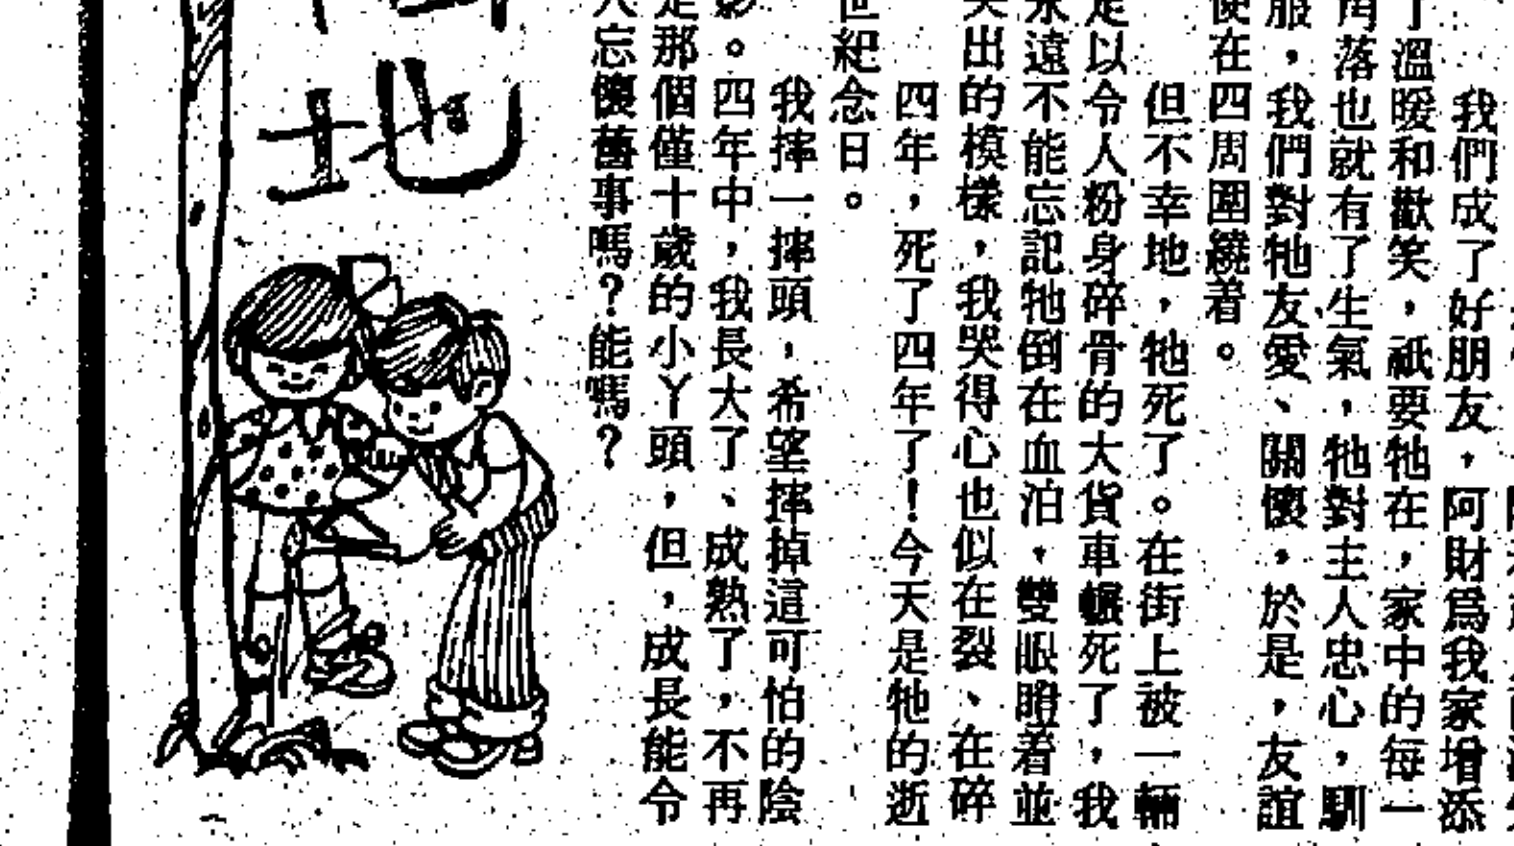 我們成了好朋友，阿財爲我家增添
了溫暖和歡笑，祇要牠在，家中的每一
角落也就有了生氣，牠對主人忠心，馴
服，我們對牠友愛、關懷，於是，友誼
便在四周圍繞着。
但不幸地，牠死了。在街上被一輛
足以令人粉身碎骨的大貨車輾死了，我
永遠不能忘記牠倒在血泊，雙眼瞪着並
突出的模樣，我哭得心也似在裂、在碎
四年，死了四年了！今天是牠的逝
世紀念日。
我摔一摔頭，希望摔掉這可怕的陰
影。四年中，我長大了、成熟了，不再
是那個僅十歲的小丫頭，但，成長能令
人忘懷舊事嗎？能嗎？
地